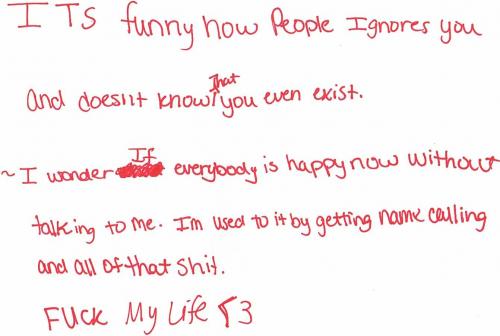 ITS funny how People Ignores you
and doesnt know that you even exist.
~I wonder If everybody is happy now without
talking to me. Im used to it by getting name calling
and all of that shit.
FUCK My Life <3